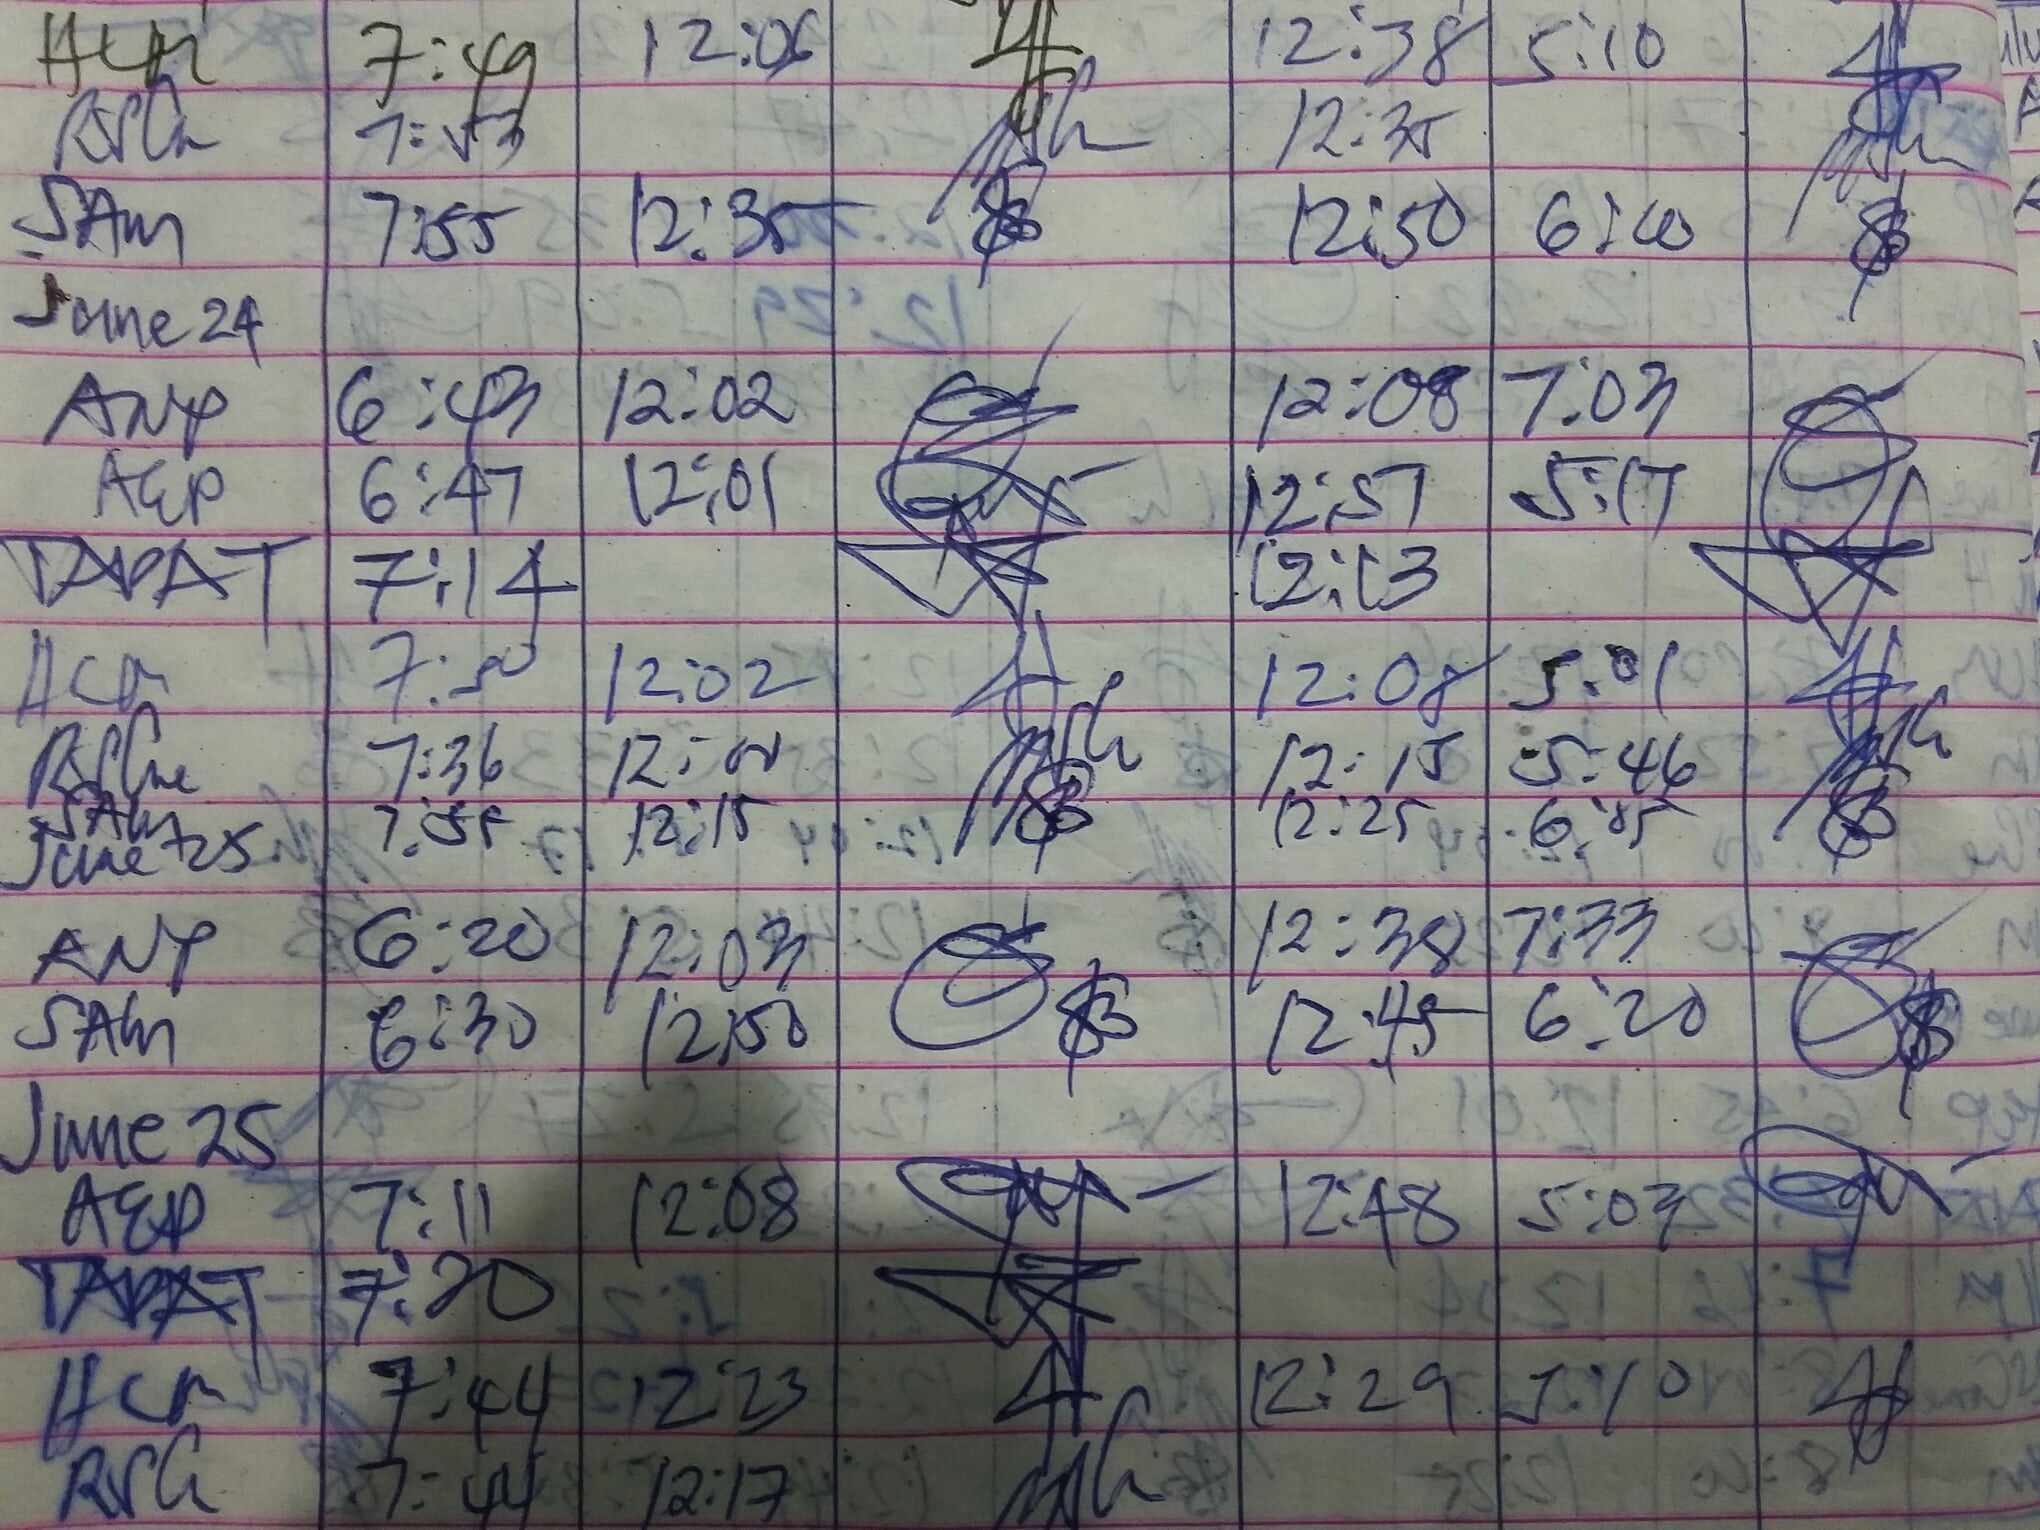 HCM 7:49 12:06 12:38 5:10
7:53 12:35
SAM 7:55 12:35 12:50 6:10
June 24
ANP 6:43 12:02 12:08 7:03
AEP 6:47 12:01 12:57 5:17
TAPAT 7:14 12:13
HCM 7:50 12:02 12:08 5:01
7:36 12:15 5:46
SAM 7:55 12:15 12:25 6:05
June 25
ANP 6:20 12:03 12:38 7:33
SAM 6:30 12:50 12:45 6:20
June 25
AEP 7:11 12:08 12:48 5:03
TAPAT 7:20
HCM 7:44 12:23 12:29 5:10
7:44 12:17